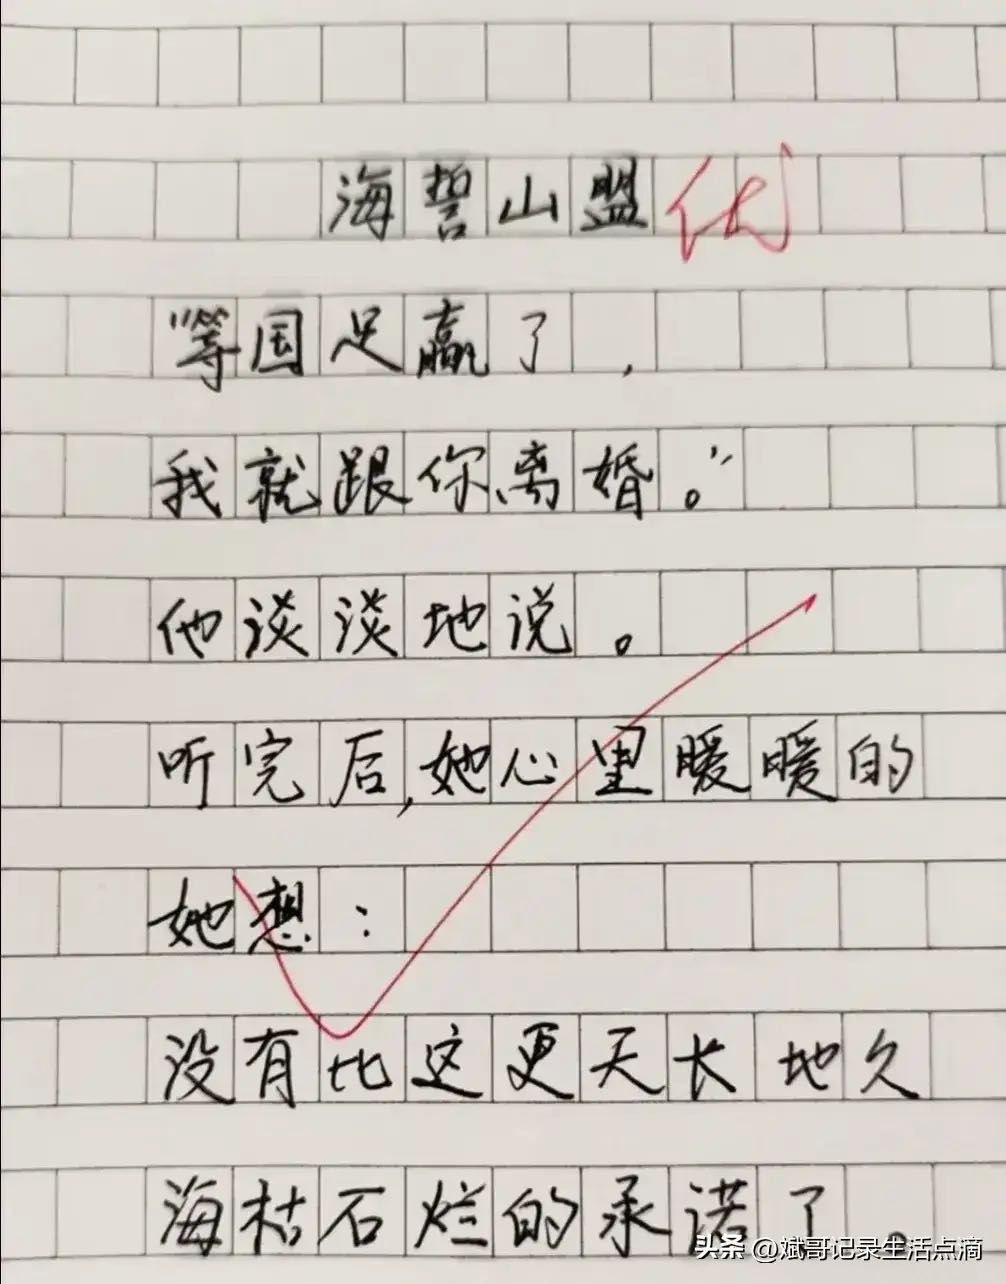 海誓山盟 优
“等国足赢了，
我就跟你离婚。”
他淡淡地说。
听完后,她心里暖暖的
她想：
没有比这更天长地久
海枯石烂的承诺了。
头条 @斌哥记录生活点滴